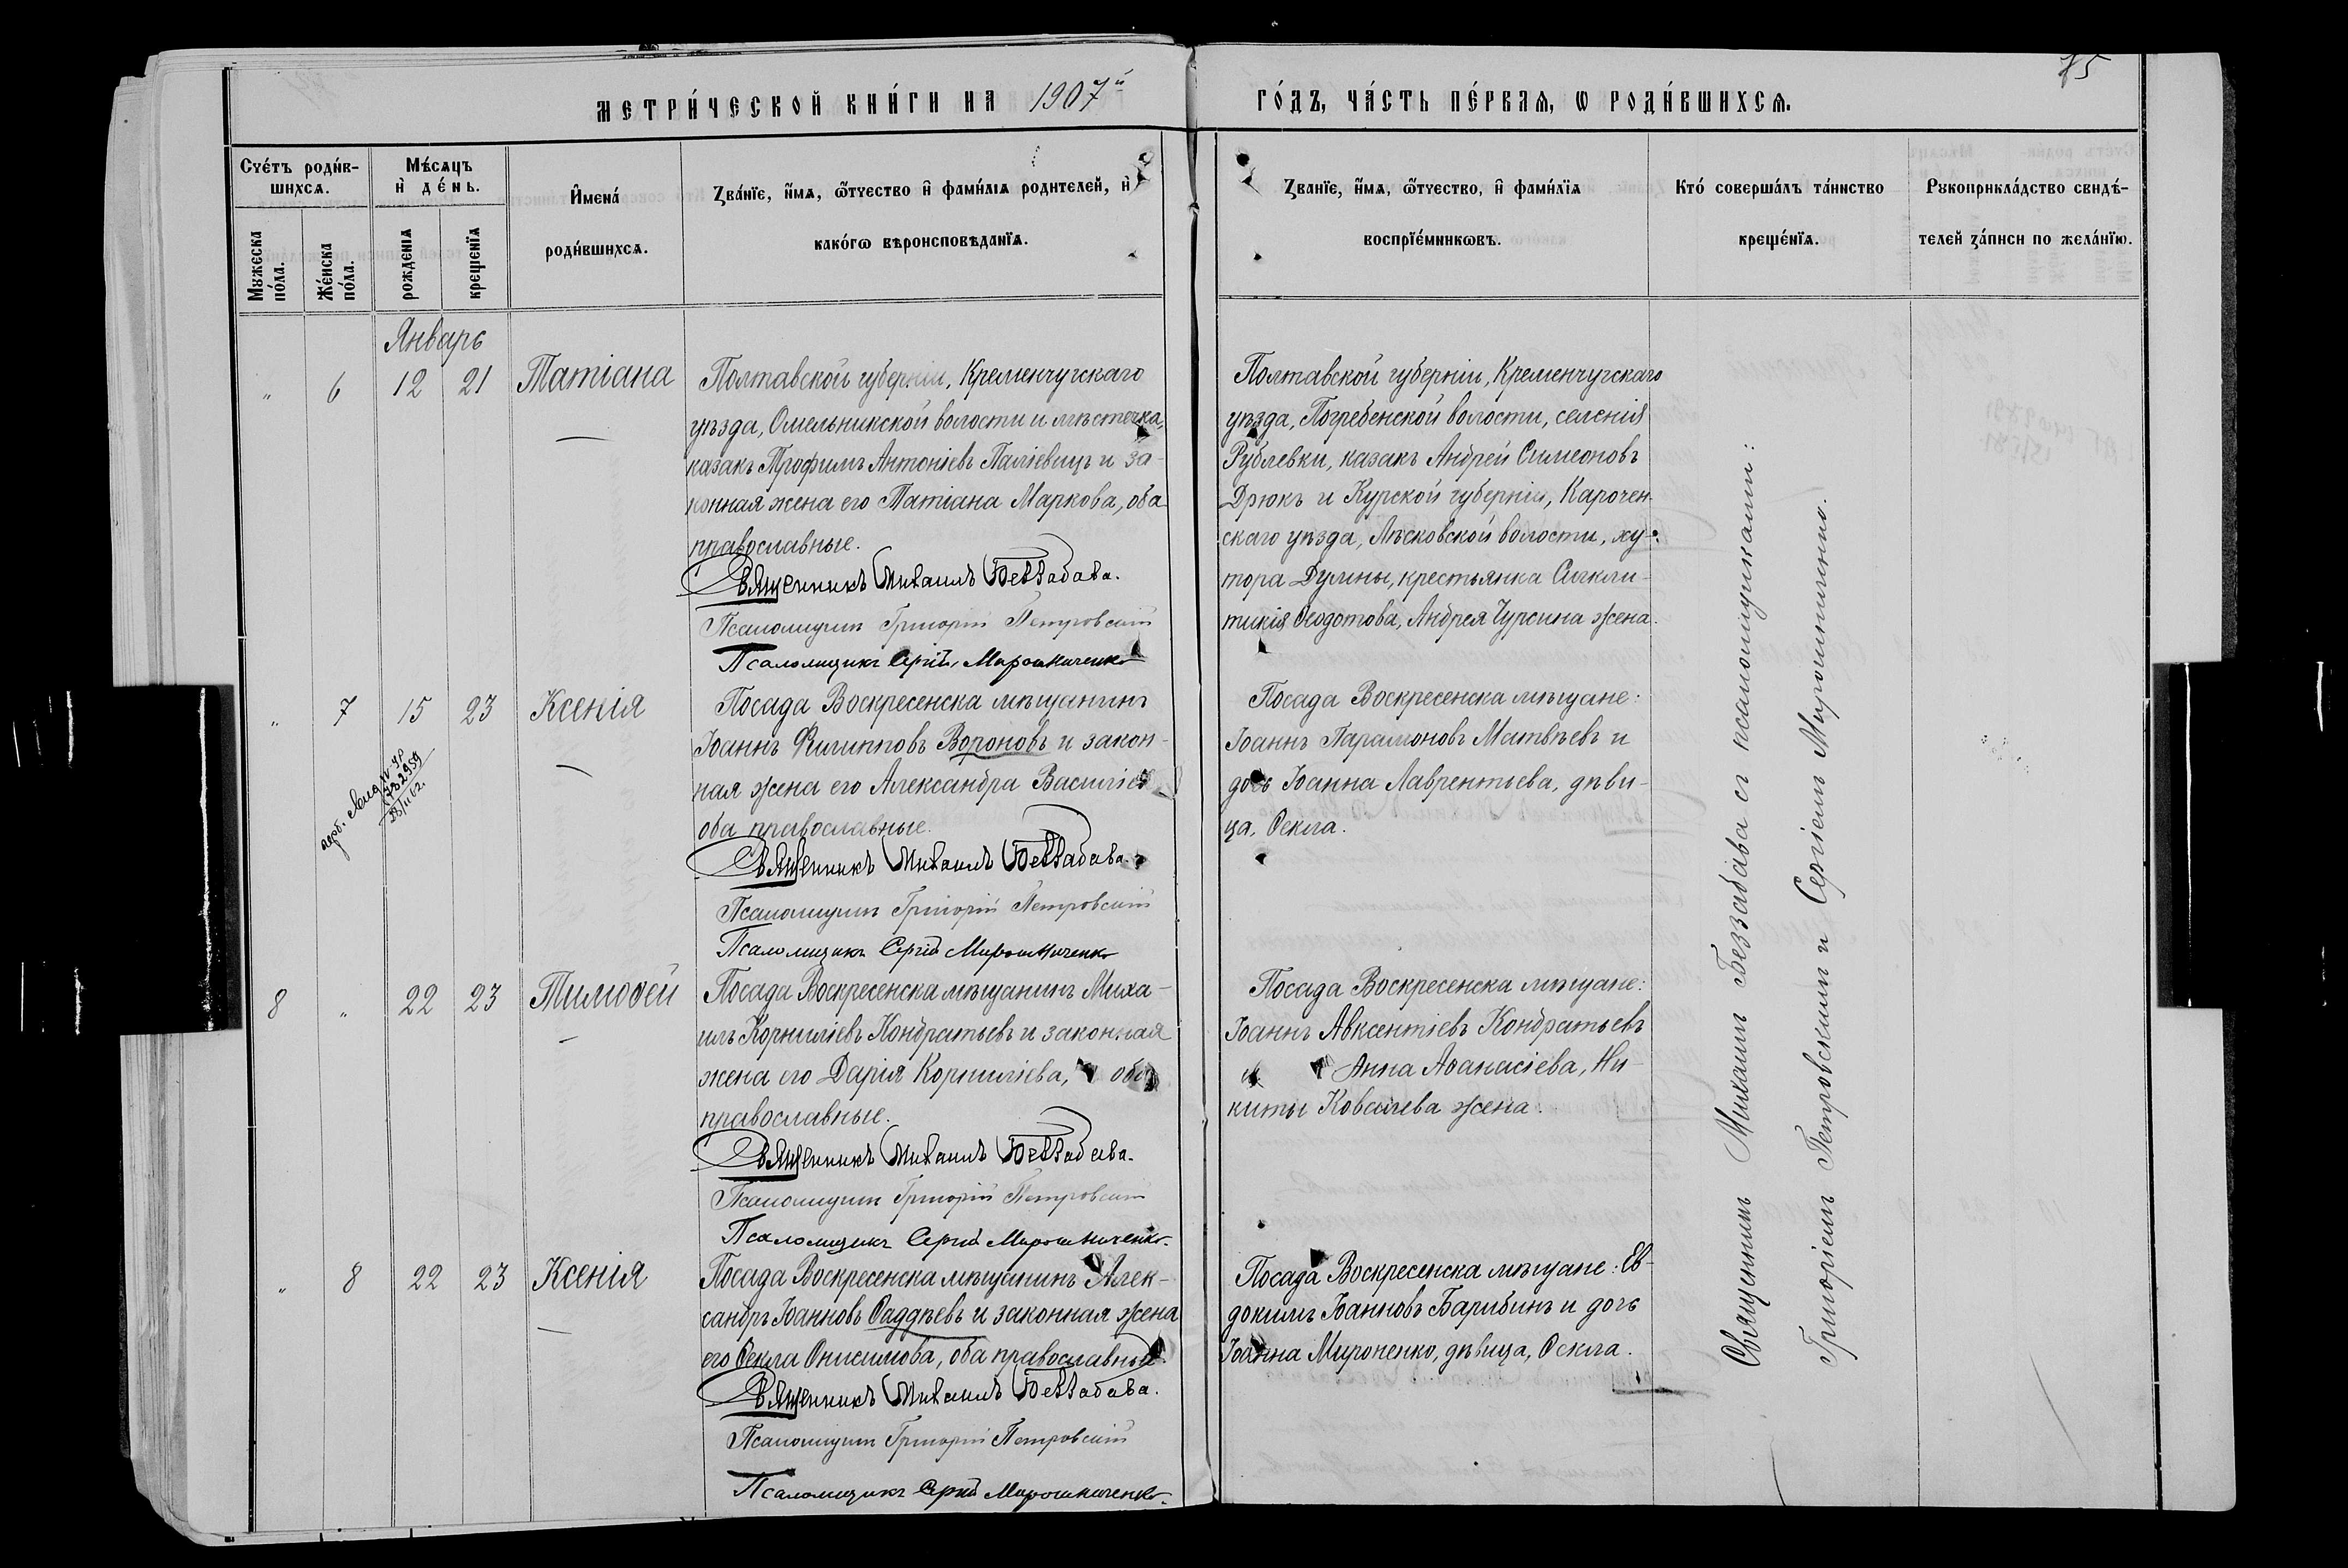 МЕТРИ́ЧЕСКОЙ КНИ́ГИ НА 1907й
ГО́ДЪ, ЧА́СТЬ ПЕ́РВАѦ, Ѡ РОДИ́ВШИХСѦ.
Сче́тъ роди́в-
шихсѧ.
Мужеска
по́ла.
Же́нска
по́ла.
Мѣ́сѧцъ
и҆ де́нь.
рожденіѧ
крещенїѧ
И҆мена́
роди́вшихсѧ.
Зва́нїе, и҆́мѧ, ѻ҆́тчество и҆ фами́лїѧ родителей, и҆
како́гѡ вѣроисповѣданїѧ.
Званїе, и҆́мѧ, ѻ҆́тчество, и҆ фами́лїѧ
воспрїе́мникѡвъ.
Кто́ соверша́лъ та́инство
креще́нїѧ.
Рукоприкла́дство свидѣ́-
телей за́писи по жела́нїю.
Январь
" 6 12 21 Татіана
Полтавской губерніи, Кременчугскаго
уѣзда, Омельникской волости и мѣстечка,
казакъ Трофимъ Антоніевъ Паліевицъ и за-
конная жена его Татіана Маркова, оба
православные.
Священникъ Михаилъ Беззабава.
Псаломщикъ Григорій Петровскій
Псаломщикъ Сергій Мирошниченко
Полтавской губерніи, Кременчугскаго
уѣзда, Погребенской волости, селенія
Рублевки, казакъ Андрей Симеоновъ
Дрюкъ и Курской губерніи, Карочен-
скаго уѣзда, Лѣсковской волости, ху-
тора Дулины, крестьянка Синкли-
тикія Ѳеодотова, Андрея Чурсина жена.
" 7 15 23 Ксенія
Посада Воскресенска мѣщанинъ
Іоаннъ Филипповъ Вороновъ и закон-
ная жена его Александра Василіев
оба православные.
Священникъ Михаилъ Беззабава.
Псаломщикъ Григорій Петровскій
Псаломщикъ Сергій Мирошниченко
Посада Воскресенска мѣщане:
Іоаннъ Парамоновъ Матвѣевъ и
дочь Іоанна Лаврентьева, дѣви-
ца, Ѳекла.
8 " 22 23 Тимоѳей
Посада Воскресенска мѣщанинъ Миха-
илъ Корниліевъ Кондратьевъ и законная
жена его Дарія Корниліева, оба
православные.
Священникъ Михаилъ Беззабава.
Псаломщикъ Григорій Петровскій
Псаломщикъ Сергій Мирошниченко.
Посада Воскресенска мѣщане:
Іоаннъ Авксентіевъ Кондратьевъ
и Анна Аѳанасіева, Ни-
киты Ковалева жена.
" 8 22 23 Ксенія
Посада Воскресенска мѣщанинъ Алек-
сандръ Іоанновъ Ѳаддѣевъ и законная жена
его Ѳекла Онисимова, оба православные.
Священникъ Михаилъ Беззабава.
Псаломщикъ Григорій Петровскій
Псаломщикъ Сергій Мирошниченко.
Посада Воскресенска мѣщане: Ев-
докимъ Іоанновъ Барибинъ и дочь
Іоанна Мироненко, дѣвица, Ѳекла.
Священникъ Михаилъ Беззабава съ псаломщиками:
Григоріемъ Петровскимъ и Сергіемъ Мирошниченко.